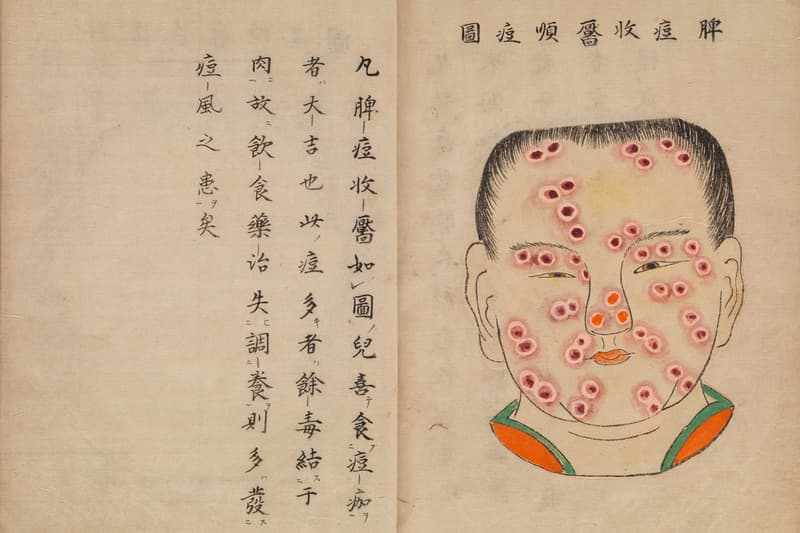 脾痘收靨順症圖
凡脾痘收靨如圖兒喜食痘痂
者大吉也此痘多者餘毒結于
肉故飲食藥治失調養則多發
痘風之患矣